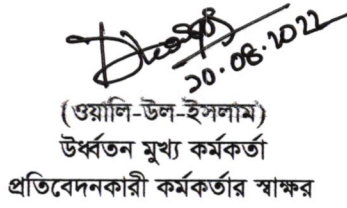 20.08.2022
(ওয়ালি-উল-ইসলাম)
উর্ধ্বতন মুখ্য কর্মকর্তা
প্রতিবেদনকারী কর্মকর্তার স্বাক্ষর